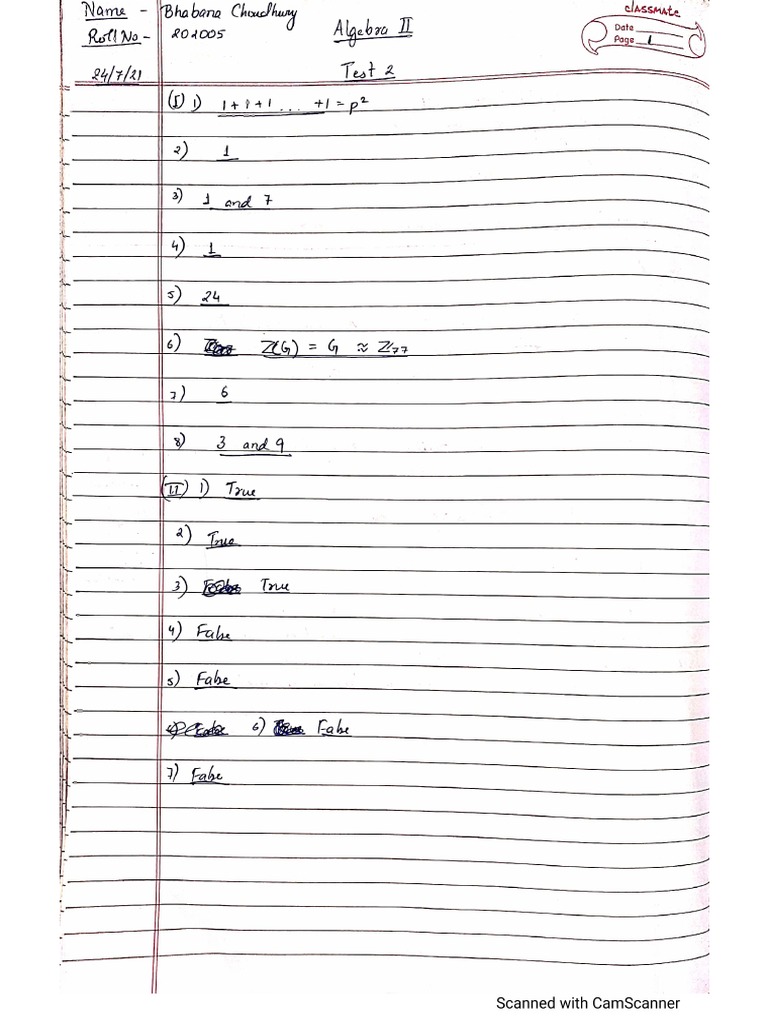 Name - Bhabana Choudhury
classmate
Roll No - 202005
Algebra II
Date
Page 1
24/7/21
Test 2
(I) 1) 1+1+1 ... +1 = p²
2) 1
3) 1 and 7
4) 1
5) 24
6) Z(G) = G ≈ Z₇₇
7) 6
8) 3 and 9
(II) 1) True
2) True
3) True
4) False
5) False
6) False
7) False
Scanned with CamScanner